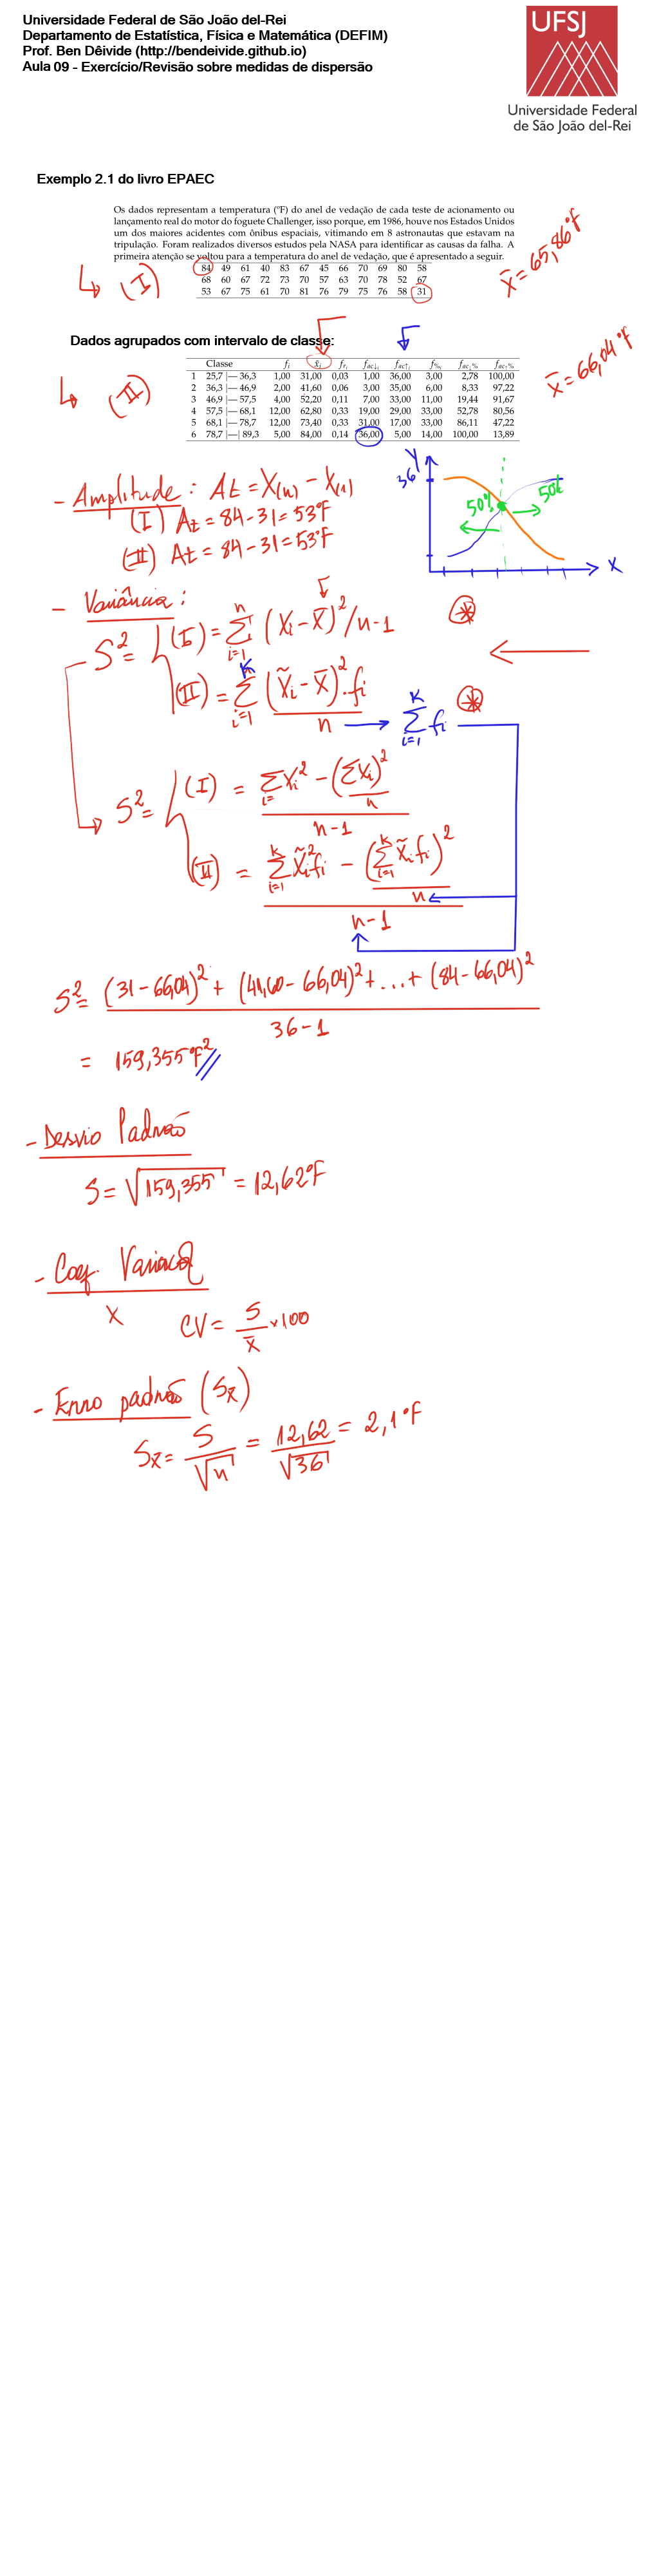 Universidade Federal de São João del-Rei
Departamento de Estatística, Física e Matemática (DEFIM)
Prof. Ben Dêivide (http://bendeivide.github.io)
Aula 09 - Exercício/Revisão sobre medidas de dispersão
UFSJ
Universidade Federal
de São João del-Rei
Exemplo 2.1 do livro EPAEC
Os dados representam a temperatura (ºF) do anel de vedação de cada teste de acionamento ou
lançamento real do motor do foguete Challenger, isso porque, em 1986, houve nos Estados Unidos
um dos maiores acidentes com ônibus espaciais, vitimando em 8 astronautas que estavam na
tripulação. Foram realizados diversos estudos pela NASA para identificar as causas da falha. A
primeira atenção se voltou para a temperatura do anel de vedação, que é apresentado a seguir.
(I)
84 49 61 40 83 67 45 66 70 69 80 58
68 60 67 72 73 70 57 63 70 78 52 67
53 67 75 61 70 81 76 79 75 76 58 31
X̄ = 65,86°F
Dados agrupados com intervalo de classe:
(II)
Classe fᵢ x̃ᵢ frᵢ fac↓ᵢ fac↑ᵢ f%ᵢ fac↓% fac↑%
1 25,7 |— 36,3 1,00 31,00 0,03 1,00 36,00 3,00 2,78 100,00
2 36,3 |— 46,9 2,00 41,60 0,06 3,00 35,00 6,00 8,33 97,22
3 46,9 |— 57,5 4,00 52,20 0,11 7,00 33,00 11,00 19,44 91,67
4 57,5 |— 68,1 12,00 62,80 0,33 19,00 29,00 33,00 52,78 80,56
5 68,1 |— 78,7 12,00 73,40 0,33 31,00 17,00 33,00 86,11 47,22
6 78,7 |—| 89,3 5,00 84,00 0,14 36,00 5,00 14,00 100,00 13,89
X̄ = 66,04°F
Y
36
50% 50%
X
- Amplitude: At = X(n) - X(1)
(I) At = 84 - 31 = 53°F
(II) At = 84 - 31 = 53°F
- Variância:
S² = (I) = Σ i=1 n (Xi - X̄)² / n-1
(II) = Σ i=1 K (X̃i - X̄)² · fi / n → Σ i=1 K fi
S² = (I) = Σ i= Xi² - (ΣXi)² / n / n-1
(II) = Σ i=1 K X̃i² fi - (Σ i=1 K X̃i fi)² / n / n-1
S² = (31 - 66,04)² + (41,60 - 66,04)² + ... + (84 - 66,04)² / 36 - 1
= 159,355°F²
- Desvio Padrão
S = √159,355 = 12,62°F
- Coef. Variação
X CV = S / X̄ × 100
- Erro padrão (Sx̄)
Sx̄ = S / √n = 12,62 / √36 = 2,1°F